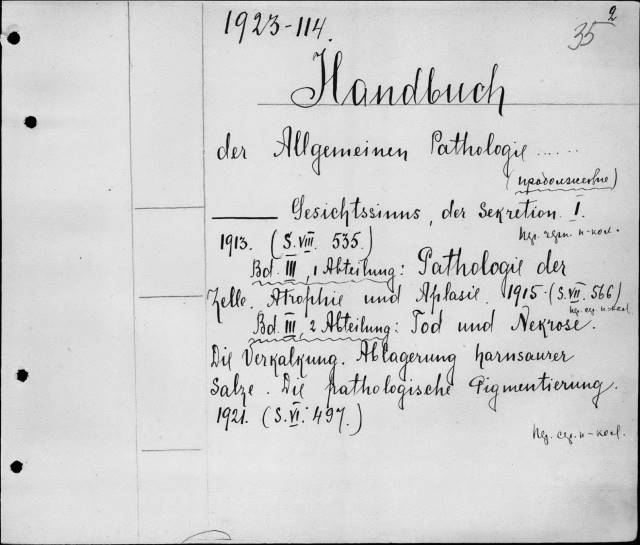 1923-114.
35 2
Handbuch
der Allgemeinen Pathologie ......
(продолжение)
Gesichtssinns, der Sekretion. I.
1913. (S. VIII. 535.)
Bd. III, 1 Abteilung: Pathologie der
Zelle. Atrophie und Aplasie. 1915. (S. VII. 566)
Bd. III, 2 Abteilung: Tod und Nekrose.
Die Verkalkung. Ablagerung harnsaurer
Salze. Die pathologische Pigmentierung.
1921. (S. VI. 497.)